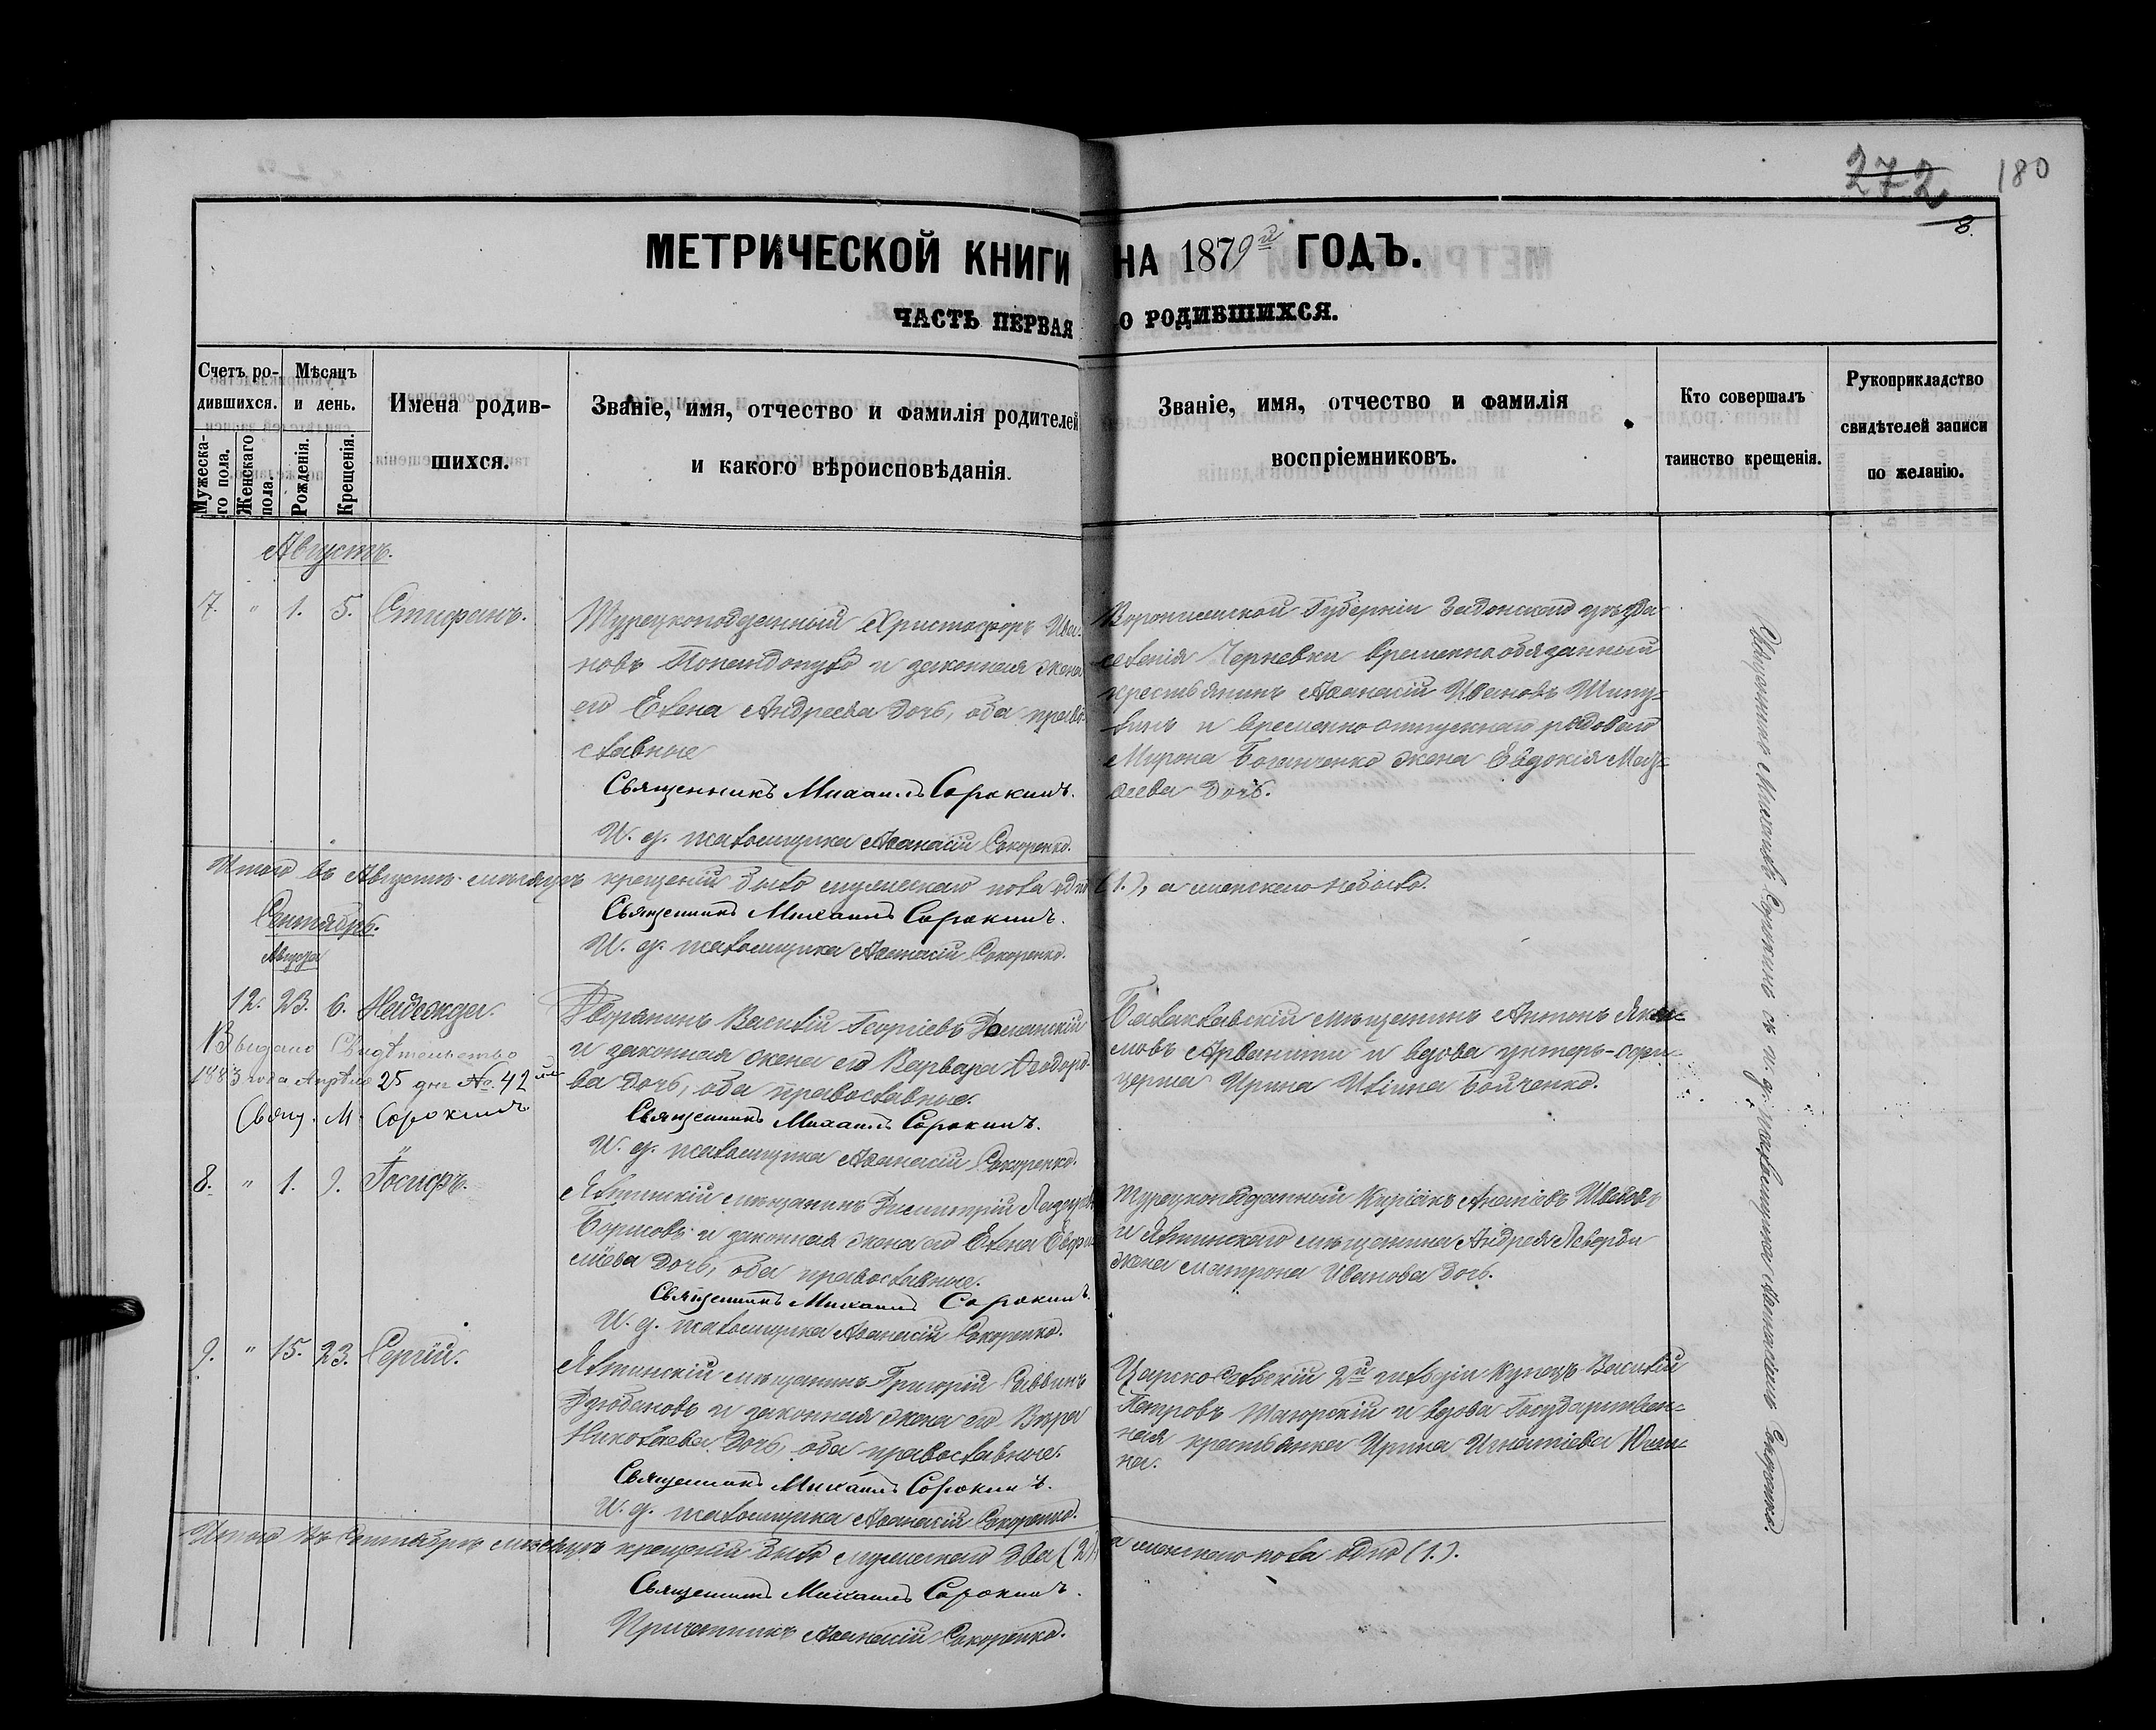 272 180
8.
МЕТРИЧЕСКОЙ КНИГИ НА 1879й ГОДЪ.
ЧАСТЬ ПЕРВАЯ О РОДИВШИХСЯ.
Счетъ ро-
дившихся.
Мужеска-
го пола.
Женскаго
пола.
Мѣсяцъ
и день.
Рожденія.
Крещенія.
Имена родив-
шихся.
Званіе, имя, отчество и фамилія родителей
и какого вѣроисповѣданія.
Званіе, имя, отчество и фамилія
воспріемниковъ.
Кто совершалъ
таинство крещенія.
Рукоприкладство
свидѣтелей записи
по желанію.
Августъ.
7. " 1. 5. Стефанъ.
Турецкоподданный Христофоръ Ива-
новъ Попандопуло и законная жена
его Елена Андреева дочь, оба право-
славные
Священникъ Михаилъ Сорокинъ.
И. д. псаломщика Аѳанасій Сокоренко.
Воронежской Губерніи Задонскаго уѣзда
селенія Черневки временнообязанный
крестьянинъ Аѳанасій Ивановъ
и временно отпускнаго рядоваго
Мирона жена Евдокія
дочь.
Итого въ Августѣ мѣсяцѣ крещеній было мужескаго пола одно (1.), а женскаго небыло.
Священникъ Михаилъ Сорокинъ.
И. д. псаломщика Аѳанасій Сокоренко.
Сентябрь.
Августа
12. 23. 6. Надежда.
Выдано Свидѣтельство
1883 года Апрѣля 25 дня № 42
Свящ. М. Сорокинъ
Дворянинъ Василій Георгіевъ Доманскій
и законная жена его Варвара Ѳеодоро-
ва дочь, оба православные.
Священникъ Михаилъ Сорокинъ.
И. д. псаломщика Аѳанасій Сокоренко.
Балаклавскій мѣщанинъ Антонъ Яки-
мовъ Арванити и вдова унтеръ-офи-
церша Ирина Ильина Бойченко.
8. " 1. 9. Іосифъ.
Ялтинскій мѣщанинъ Димитрій
Борисовъ и законная жена его Елена Евфи-
міева дочь, оба православные.
Священникъ Михаилъ Сорокинъ.
И. д. псаломщика Аѳанасій Сокоренко.
Турецкоподданный Киріакъ
и Ялтинскаго мѣщанина Андрея
жена Матрона Иванова дочь.
9. " 15. 23. Сергій.
Ялтинскій мѣщанинъ Григорій Саввинъ
Дзюбановъ и законная жена его Вѣра
Николаева дочь, оба православные.
Священникъ Михаилъ Сорокинъ.
И. д. псаломщика Аѳанасій Сокоренко.
Царскосельскій 2й гильдіи купецъ Василій
Петровъ и вдова Государствен-
ная крестьянка Ирина Игнатіева Юди-
на.
Итого въ Сентябрѣ мѣсяцѣ крещеній было мужескаго два (2), а женскаго пола одно (1.).
Священникъ Михаилъ Сорокинъ.
Причетникъ Аѳанасій Сокоренко.
Священникъ Михаилъ Сорокинъ съ и. д. псаломщика Аѳанасіемъ Сокоренко.